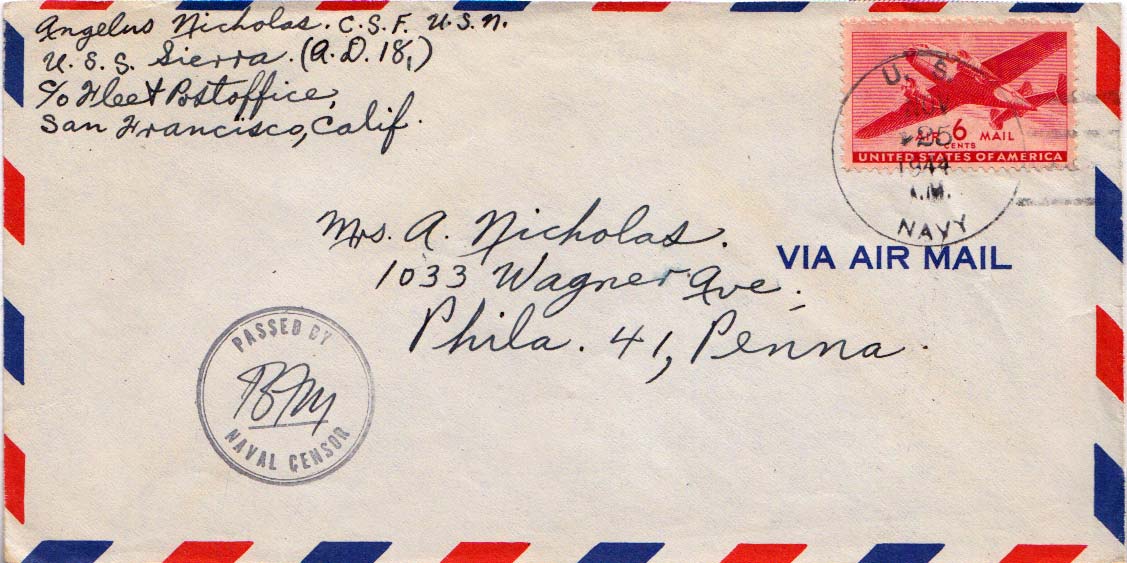 Angelus Nicholas. C.S.F. U.S.N.
U.S.S. Sierra. (A.D. 18,)
c/o Fleet Postoffice,
San Francisco, Calif.
U. S.
NOV
25
1944
A.M.
NAVY
AIR 6 MAIL
CENTS
UNITED STATES OF AMERICA
Mrs. A. Nicholas.
1033 Wagner Ave.
Phila. 41, Penna.
VIA AIR MAIL
PASSED BY
NAVAL CENSOR